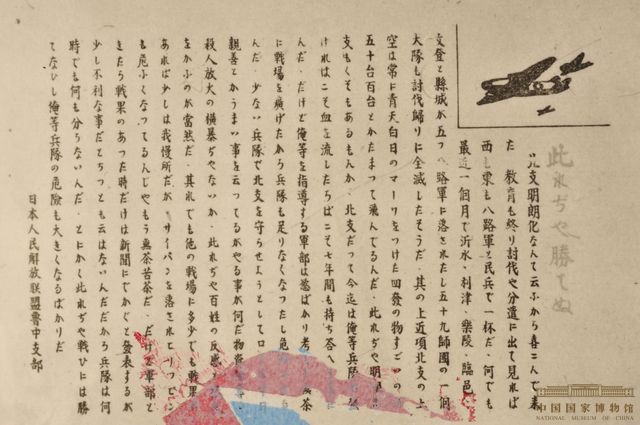 此れぢや勝てぬ
北支明朗化なんて云ふから喜こんで来
た 教育も終り討伐や分遣に出て見れば
西も東も八路軍と民兵で一杯だ 何でも
最近一個月で沂水、利津、樂陵、臨邑
文登と縣城が五つ八路軍に落された
し五十九師團の一個
大隊も討伐歸りに全滅したそうだ・其の上近頃北支の上
空は常に青天白日のマークをつけた四發の物すごい
五十台百台とかたまつて飛んでるんだ・此れぢや明
支もくそもあるもんか・北支だつて今迄は俺等兵隊
ければこそ血を流したらばこそ七年間も持ち答へ
んだ・だけど俺等を指導する軍部は慾ばかり考 無茶
に戦場を廣げたから兵隊も足りなくなつたし危
んだ・少ない兵隊で北支を守らせようとして口
親善とかうまい事を云つてるがやる事が何だ物資
殺人放火の横暴ぢやないか・此れぢや百姓の反感
をかふのが當然だ・其れでも他の戦場に多少でも戦果
あれば少しは我慢所だが・サイパンを落されヒリッピン
も危ふくなつてるんじやもう無茶苦茶だ・だけど軍部と
きたら戦果のあつた時だけは新聞にでかでかと發表するが
少し不利な事だとちつとも云はないんだだから兵隊は何
時でも何も分らないんだ・とにかく此れぢや戦ひには勝
てないし俺等兵隊の危險も大きくなるばかりだ
日本人民解放联盟魯中支部
中国国家博物馆
NATIONAL MUSEUM OF CHINA